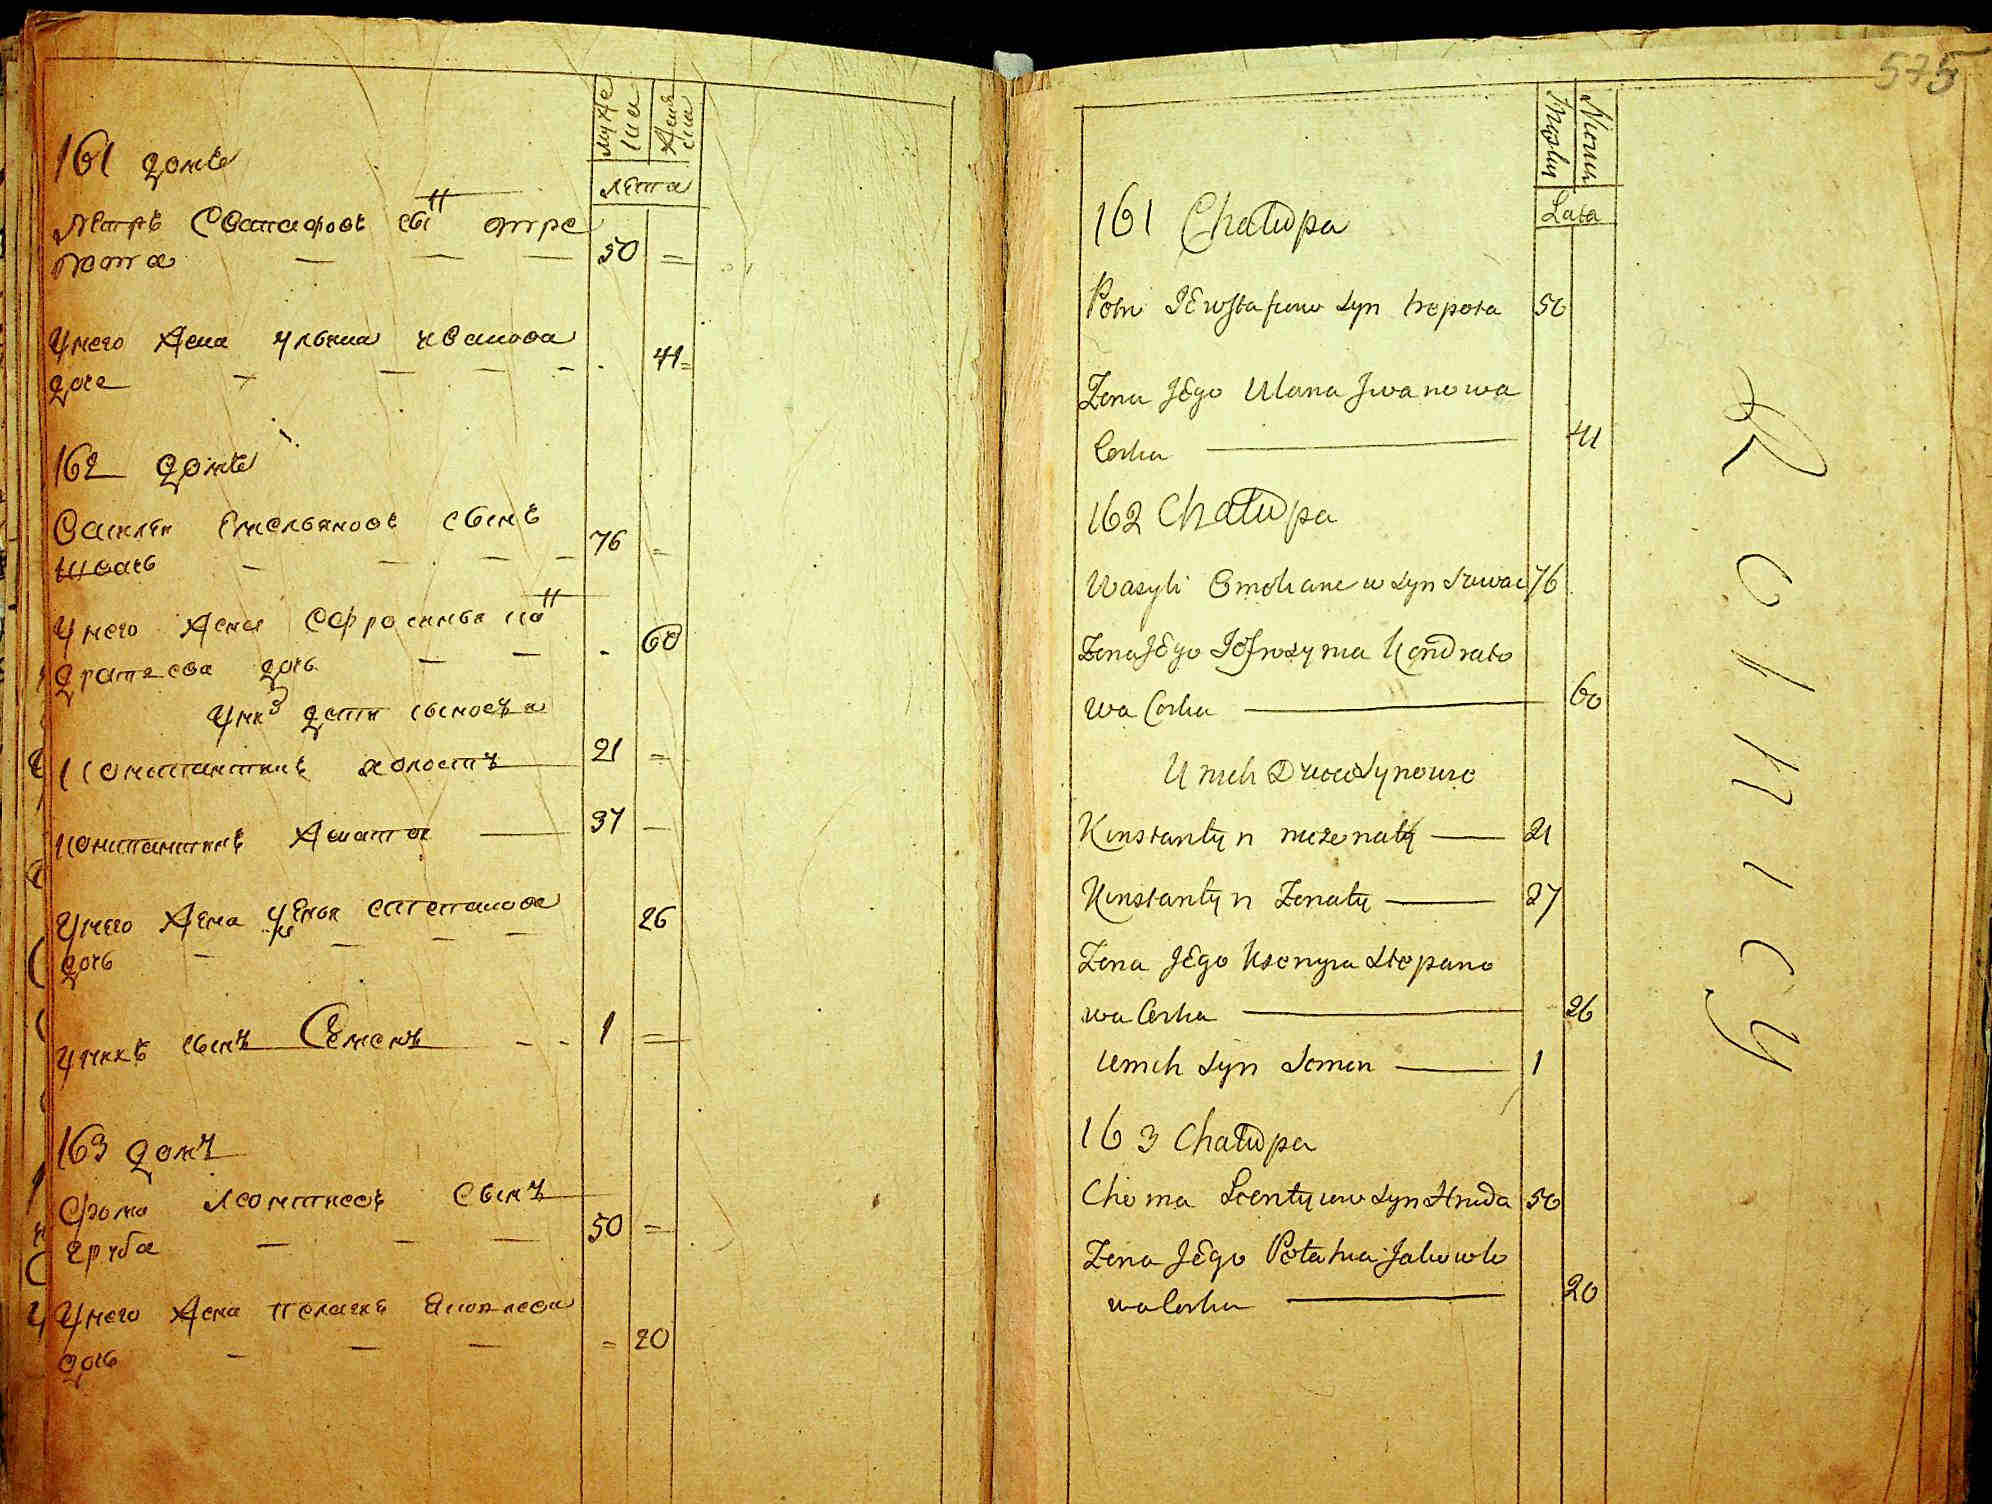 мужеска
женска
лета
161 домъ
Петръ Евстафовъ сынъ трепота
50 =
У него жена Ульяна Иванова
дочь
41 =
162 домъ
Василей Емельяновъ сынъ
швачь
76 =
У него жена Ефросинья Кондратева дочь
60
У них дети сыновья
Константинъ холостъ 21 =
Константинъ женатой 37
У него жена Степанова
дочь
26
У нихъ сынъ Семенъ 1 =
163 домъ
Фома Леонтиевъ сынъ
груба
50 =
У него жена Пелагея Яковлева
дочь
= 20
575
Męskiey
Niewie
Lata
161 Chałupa
Potr JEwstafiew Syn trepota 50
Zona JEgo Ulana Jwanowa
Corka 41
162 Chałupa
Wasyli Emelianew Syn Szwacz 76
Zona JEgo JEfrozynia Kondrato
wa Corka 60
U nich Dwoch Synowie
Kinstantyn nieżenaty 21
Kinstantyn Zenaty 27
Zona JEgo Ksenyia Stepano
wa Corka 26
U nich Syn Semen 1
163 Chałupa
Choma Leontyiew Syn Hruba 50
Zona JEgo Polahia Jakowle
wa Corka 20
Rolnicy